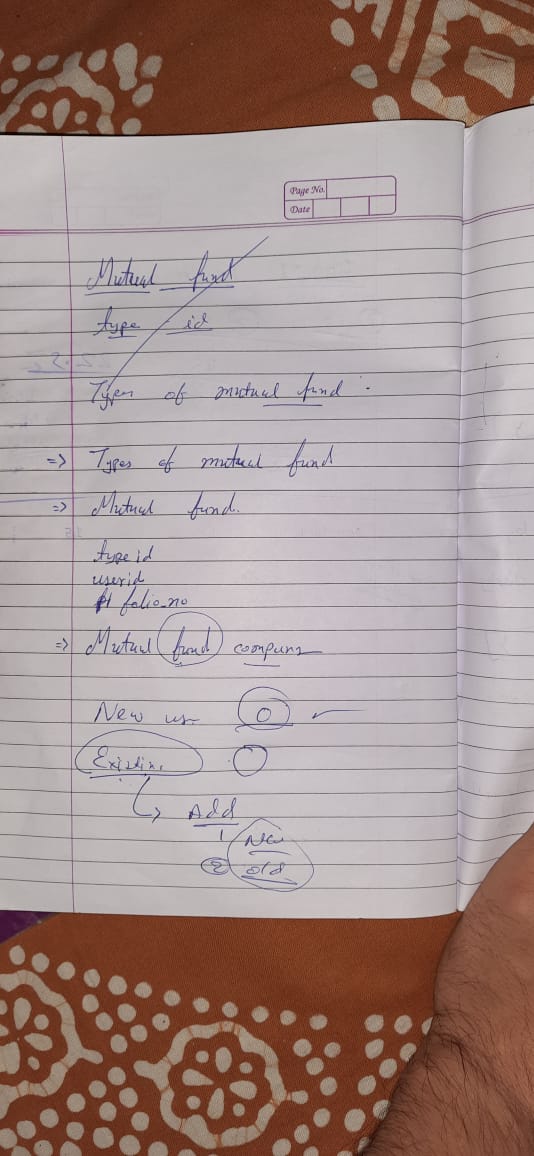 Page No.
Date
Mutual fund
type id
Types of mutual fund
=> Types of mutual fund
=> Mutual fund.
type id
userid
folio_no
=> Mutual fund
New
Existin.
Add
1 New
2 old